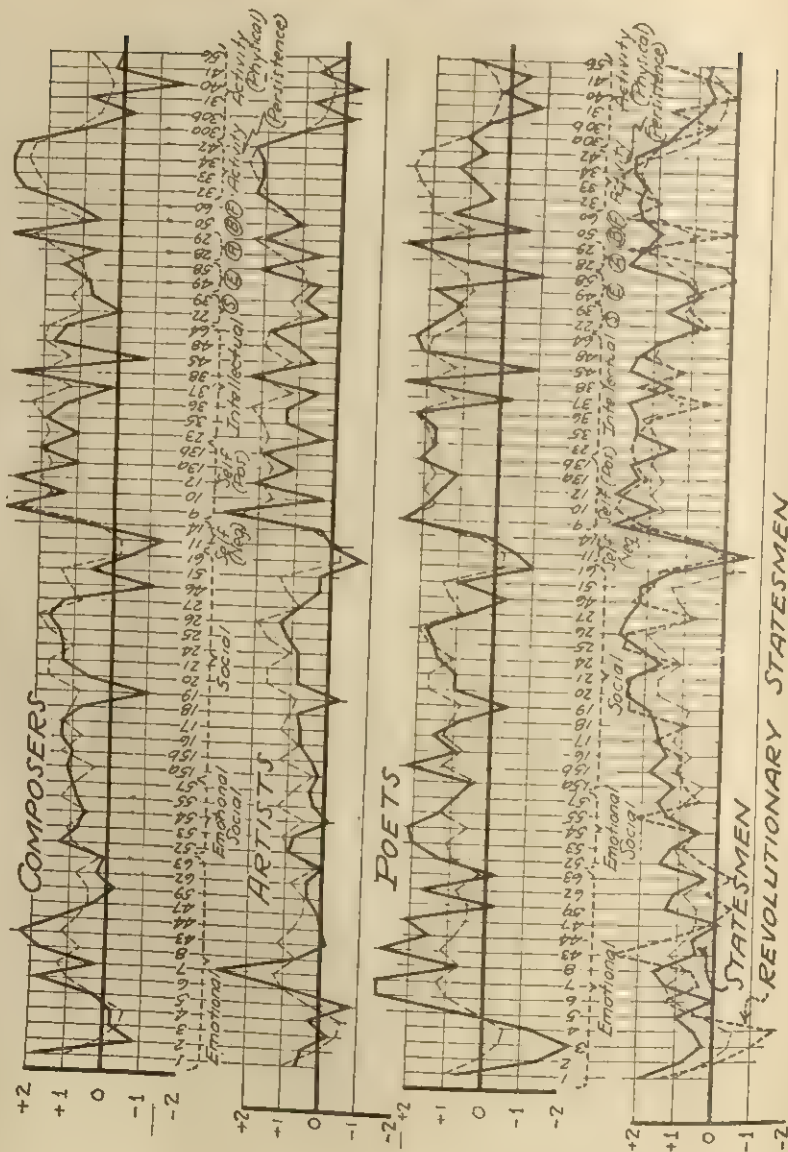 COMPOSERS
+2
+1
0
-1
-2
1 2 3 4 5 6 7 8 43 44 47 59 62 63 52 53 54 55 57 15a 15b 16 17 18 19 20 21 24 25 26 27 46 51 61 11 14 9 10 12 13a 13b 23 35 36 37 38 45 48 64 22 39 49 58 28 29 50 60 32 33 34 42 30a 30b 31 40 41 56
Emotional Emotional Social Social Self (Neg) Self (Pos) Intellectual Ⓢ Ⓔ Ⓐ Ⓑ Ⓔ Activity (Persistence) Activity (Physical)
ARTISTS
+2
+1
0
-1
-2
POETS
+2
+1
0
-1
-2
1 2 3 4 5 6 7 8 43 44 47 59 62 63 52 53 54 55 57 15a 15b 16 17 18 19 20 21 24 25 26 27 46 51 61 11 14 9 10 12 13a 13b 23 35 36 37 38 45 48 64 22 39 49 58 28 29 50 60 32 33 34 42 30a 30b 31 40 41 56
Emotional Emotional Social Social Self (Neg) Self (Pos) Intellectual Ⓢ Ⓔ Ⓐ Ⓑ Ⓔ Activity (Persistence) Activity (Physical)
+2
+1
0
-1
-2
STATESMEN
REVOLUTIONARY STATESMEN